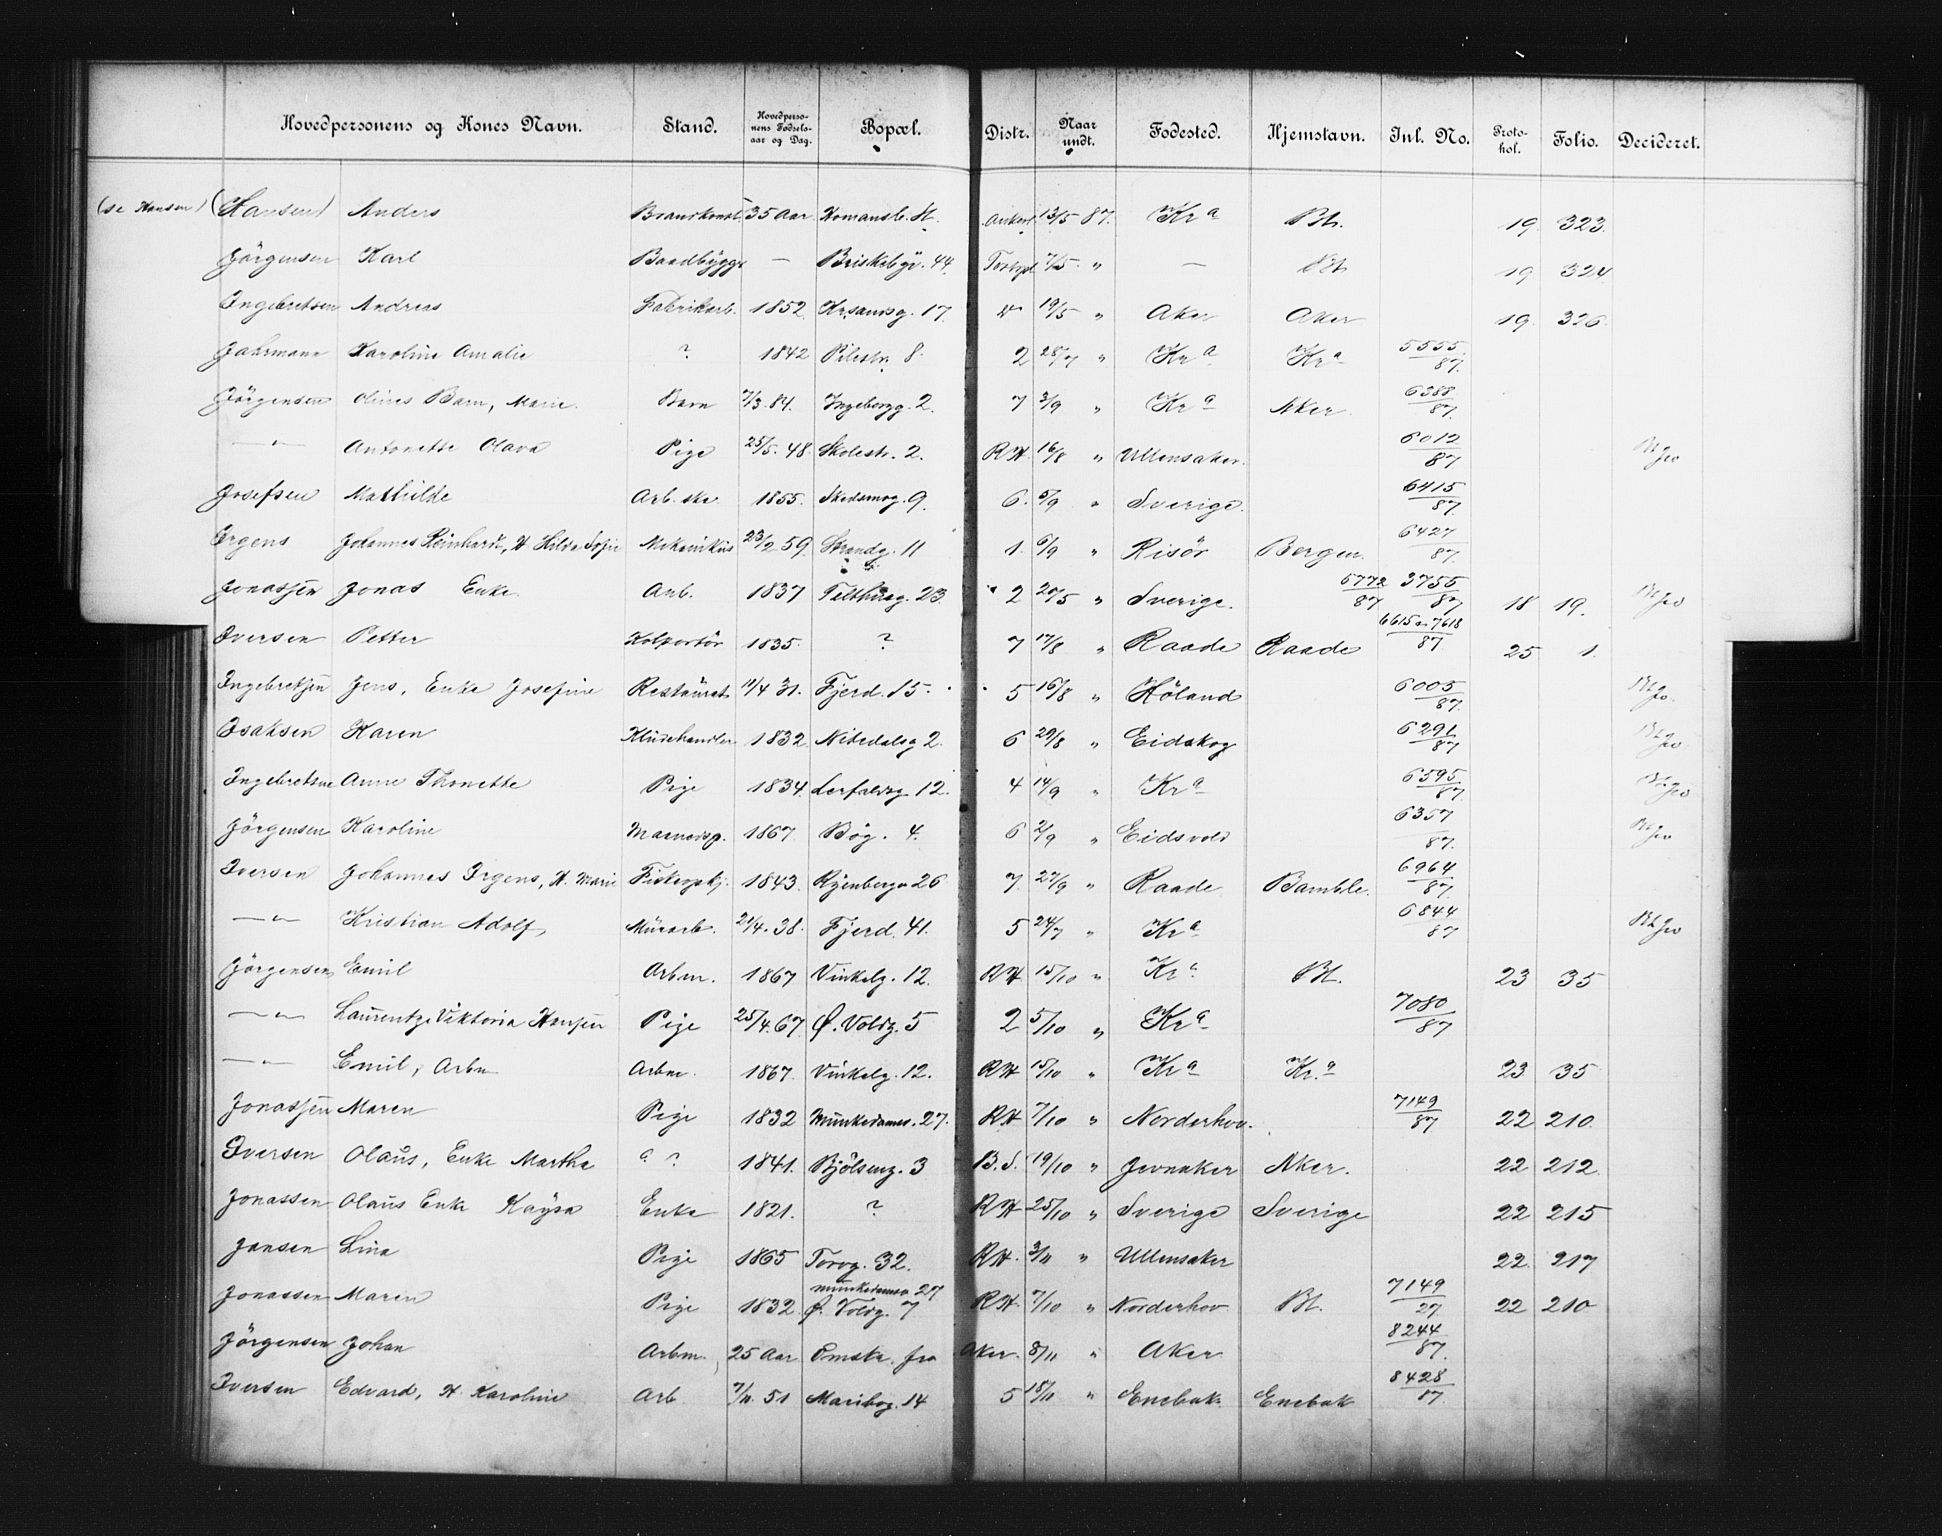 Hovedpersonens og Kones Navn. Stand. Hovedpersonens Fødselsaar og Dag. Bopæl. Distr. Naar undt. Fødested. Hjemstavn. Inl. No. Protokol. Folio. Decideret.
(se Hansen) (Hansen) Anders Brandkonst. 35 Aar Homansb. St. Ankert. 13/5 87. Kra Bt. 19 323.
Jörgensen Karl Baadbygger — Briskebyv. 44. 7/5 " — Bt. 19 324
Ingebretsen Andreas Fabrikarb. 1852 Krsandsg. 17. 19/5 " Aker Aker 19. 326
Jahrmann Karoline Amalie ? 1842 Pilestr. 8. 2 28/7 " Kra Kra 5555/87.
Jörgensen Olines Barn, Marie. Barn 7/3. 84. Ingeborgg. 2. 7 3/9 " Kra Aker. 6388/87.
—"— Antonette Olava Pige 25/5. 48 Skolestr. 2. RH 16/8 " Ullensaker. 6012/87
Josefsen Mathilde Arb.ske 1855. Skedsmog. 9. 6. 5/9 " Sverige. 6415/87.
Irgens Johannes Reinhardt, H Hilda Sofie Mekanikus 23/2 59. Strandg. 11 1. 6/9 " Risör Bergen. 6427/87.
Jonassen Jonas Enke. Arb. 1837 Telthusg. 23. 2 20/5 " Sverige. 5772/87 3755/87 18 19.
Iversen Petter Kolportör 1835. ? 7 17/8 " Raade Raade 6615 a 7618/87. 25 1.
Ingebretsen Jens, Enke Josefine Restaurat. 11/4 31. Fjerd. 15. 5 16/8 " Höland 6005/87.
Isaksen Karen Kludehandler 1832 Nitedalsg 2. 6 29/8 " Eidskog 6291/87
Ingebretsen Anne Thonette Pige 1834. Lerfaldsg 12. 4 14/9 " Kra 6595/87.
Jörgensen Karoline Marnedsp. 1867. Bög. 4. 6 2/9 " Eidsvold 6357/87.
Iversen Johannes Irgens, H. Marie Fiskeopkj. 1843. Ryenbergv 26 7. 27/9 " Raade Bamble. 6964/87.
—"— Kristian Adolf, Murarb. 21/4. 38. Fjerd. 41. 5 24/7 " Kra 6844/87
Jörgensen, Emil Arbm. 1867 Vinkelg. 12. RH 15/10 " Kra Bt. 23 35
—"— Laurentze Viktoria Hansen Pige 25/4. 67. Ø. Voldg. 5 2 5/10 " Kra 7080/87
—"— Emil, Arbm Arbm. 1867. Vinkelg. 12. RH 15/10 " Kra Kr.a 23 35
Jonassen Maren Pige 1832 Munkedams. 27. RH 7/10 " Norderhov. 7149/87 22 210.
Iversen Olaus, Enke Martha ? 1841. Bjölseng. 3 B.S. 19/10 " Jevnaker Aker. 22 212
Jonassen Olaus Enke Kaysa Enke 1821. ? RH 25/10 " Sverige Sverige 22 215
Jansen Lina Pige 1865 Torvg. 32. RH. 3/11 " Ullensaker 22. 217
Jonassen Maren Pige 1832 Munkedamsv 27 Ø. Voldg. 7 RH. 7/10 " Norderhov Bt. 7149/27. 22 210
Jörgensen Johan Arbm. 25 Aar Omstr. fra Aker. 8/11 " Aker 8244/87.
Iversen Edvard, H. Karoline Arb. 7/11. 51 Maribog. 14 5 18/11 " Enebak Enebak 8428/87.